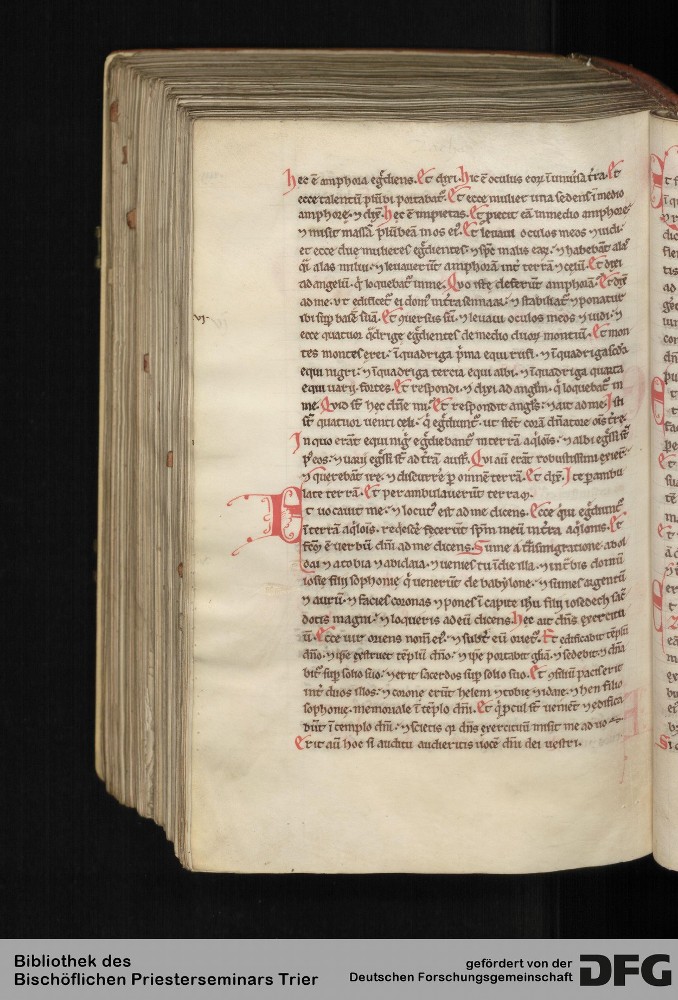 hec ē amphora egr̄diens. Et dixi. hic ē oculus eoꝝ ī uniūsa t̄ra. Et
ecce talentū plūbi portabat᷑. Et ecce mulier una sedens ī medio
amphore. ⁊ dix̄. hec ē impietas. Et p̄iecit eā ī medio amphore
⁊ misit massā plūbeā ī os ei᷒. Et levavi oculos meos ⁊ vidi.
et ecce due mulieres egr̄dientes. ⁊ sp̄c malis eaꝝ. ⁊ habebāt alas
q̄i alas milvi. ⁊ levaverūt amphorā int̄ terrā ⁊ celū. Et dixi
ad angelū. q̇ loquebat᷑ in me. Quo iste deferūt amphorā. Et dix̄
ad me. ut edificet᷑ ei dom᷒ in t̄ra sennaar. ⁊ stabiliat᷑ ⁊ ponatur
ibi suꝑ basē suā. Et ꝯversus sū. ⁊ levavi oculos meos ⁊ vidi. ⁊
ecce quatuor q̄drige egr̄dientes de medio duoꝝ montiū. Et mon
tes montes erei. ī quadriga p̄ma equi rufi. ⁊ ī quadriga sc̄da
equi nigri. ⁊ ī quadriga tercia equi albi. ⁊ ī quadriga quarta
equi varii. fortes. Et respondi. ⁊ dixi ad angl̄m. q̇ loquebat᷑ in
me. Quid st̄ hec dn̄e mi. Et respondit angl̄s. ⁊ ait ad me. Isti
st̄ quatuor venti celi. q̇ egr̄diunt᷑. ut stēt corā dn̄atore oīs t̄re.
In quo erāt equi nigͥ egr̄diebant᷑ in terrā aq̇lōis. ⁊ albi egr̄ssi st̄
p᷒ eos. ⁊ varii egr̄ssi st̄ ad t̄rā aust̄. Qui aū erāt robustissimi exier̄t
⁊ querebāt ire. ⁊ discurrē ꝑ omnē terrā. Et dix̄. Ite perambu
late terrā. Et perambulaverūt terraꝫ.
vi. Et vocavit me. ⁊ locut᷒ est ad me dicens. Ecce qͥ egr̄diunt᷑
ī terrā aq̇lōis. reqͥescē fecerūt sp̄m meū in t̄ra aq̇lonis. Et
fcm̄ ē verbū dn̄i ad me dicens. Sume a t̄nsmigratione ab ol
dai ⁊ a tobia ⁊ ab idaia. ⁊ venies tu ī die illa. ⁊ int̄bis domū
iosie filii sophonie q̇ venerūt de babylone. ⁊ sumes argentū
⁊ aurū. ⁊ facies coronas ⁊ pones ī capite ih̄u filii iosedech sac̄
dotis magni. ⁊ loqueris ad eū dicens. hec ait dn̄s exercitu
ū. Ecce vir oriens nom̄ ei᷒. ⁊ subt᷒ eū oriet᷑. Et edificabit tēplū
dn̄o. ⁊ ip̄e exstruet tēplū dn̄o. ⁊ ip̄e portabit glīā. ⁊ sedebit ⁊ dn̄a
bit᷑ suꝑ solio suo. ⁊ erit sacerdos suꝑ solio suo. Et ꝯsiliū pacis erit
int̄ duos illos. ⁊ corone erūt helem ⁊ tobie ⁊ idaie. ⁊ hen filio
sophonie. memoriale ī tēplo dn̄i. Et qͥ ꝓcul st̄ veniēt ⁊ edifica
būt ī templo dn̄i. ⁊ scietis qꝫ dn̄s exercituū misit me ad vos.
Erit aū hoc si auditu audieritis vocē dn̄i dei vestri.
Bibliothek des
Bischöflichen Priesterseminars Trier
gefördert von der
Deutschen Forschungsgemeinschaft
DFG